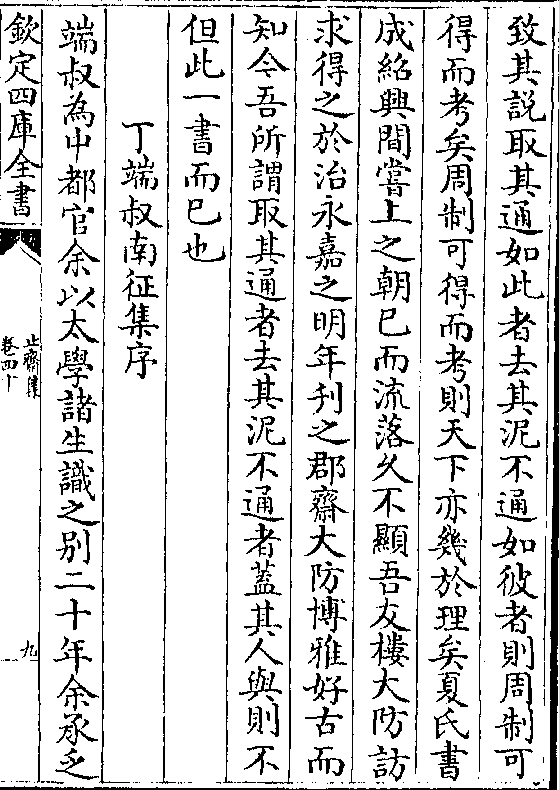 致其說取其通如此者去其泥不通如彼者則周制可
得而考矣周制可得而考則天下亦幾於理矣夏氏書
成紹興間嘗上之朝已而流落久不顯吾友樓大防訪
求得之於治永嘉之明年刋之郡齋大防博雅好古而
知今吾所謂取其通者去其泥不通者蓋其人與則不
但此一書而已也
丁端叔南征集序
端叔為中都官余以太學諸生識之别二十年余承乏
欽定四庫全書
止齋集
卷四十
九